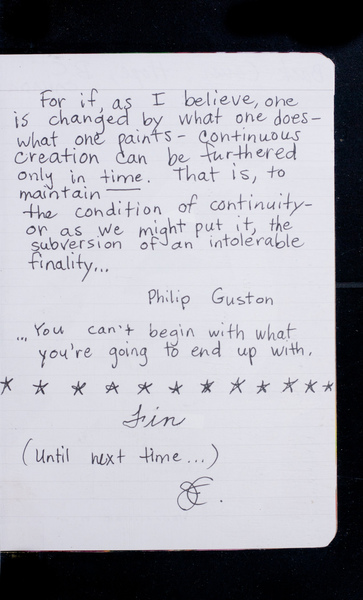 For if, as I believe, one
is changed by what one does-
what one paints- continuous
creation can be furthered
only in time. That is, to
maintain
the condition of continuity-
or as we might put it, the
subversion of an intolerable
finality...
Philip Guston
... You can't begin with what
you're going to end up with.
* * * * * * * * * * * *
Fin
(Until next time...)